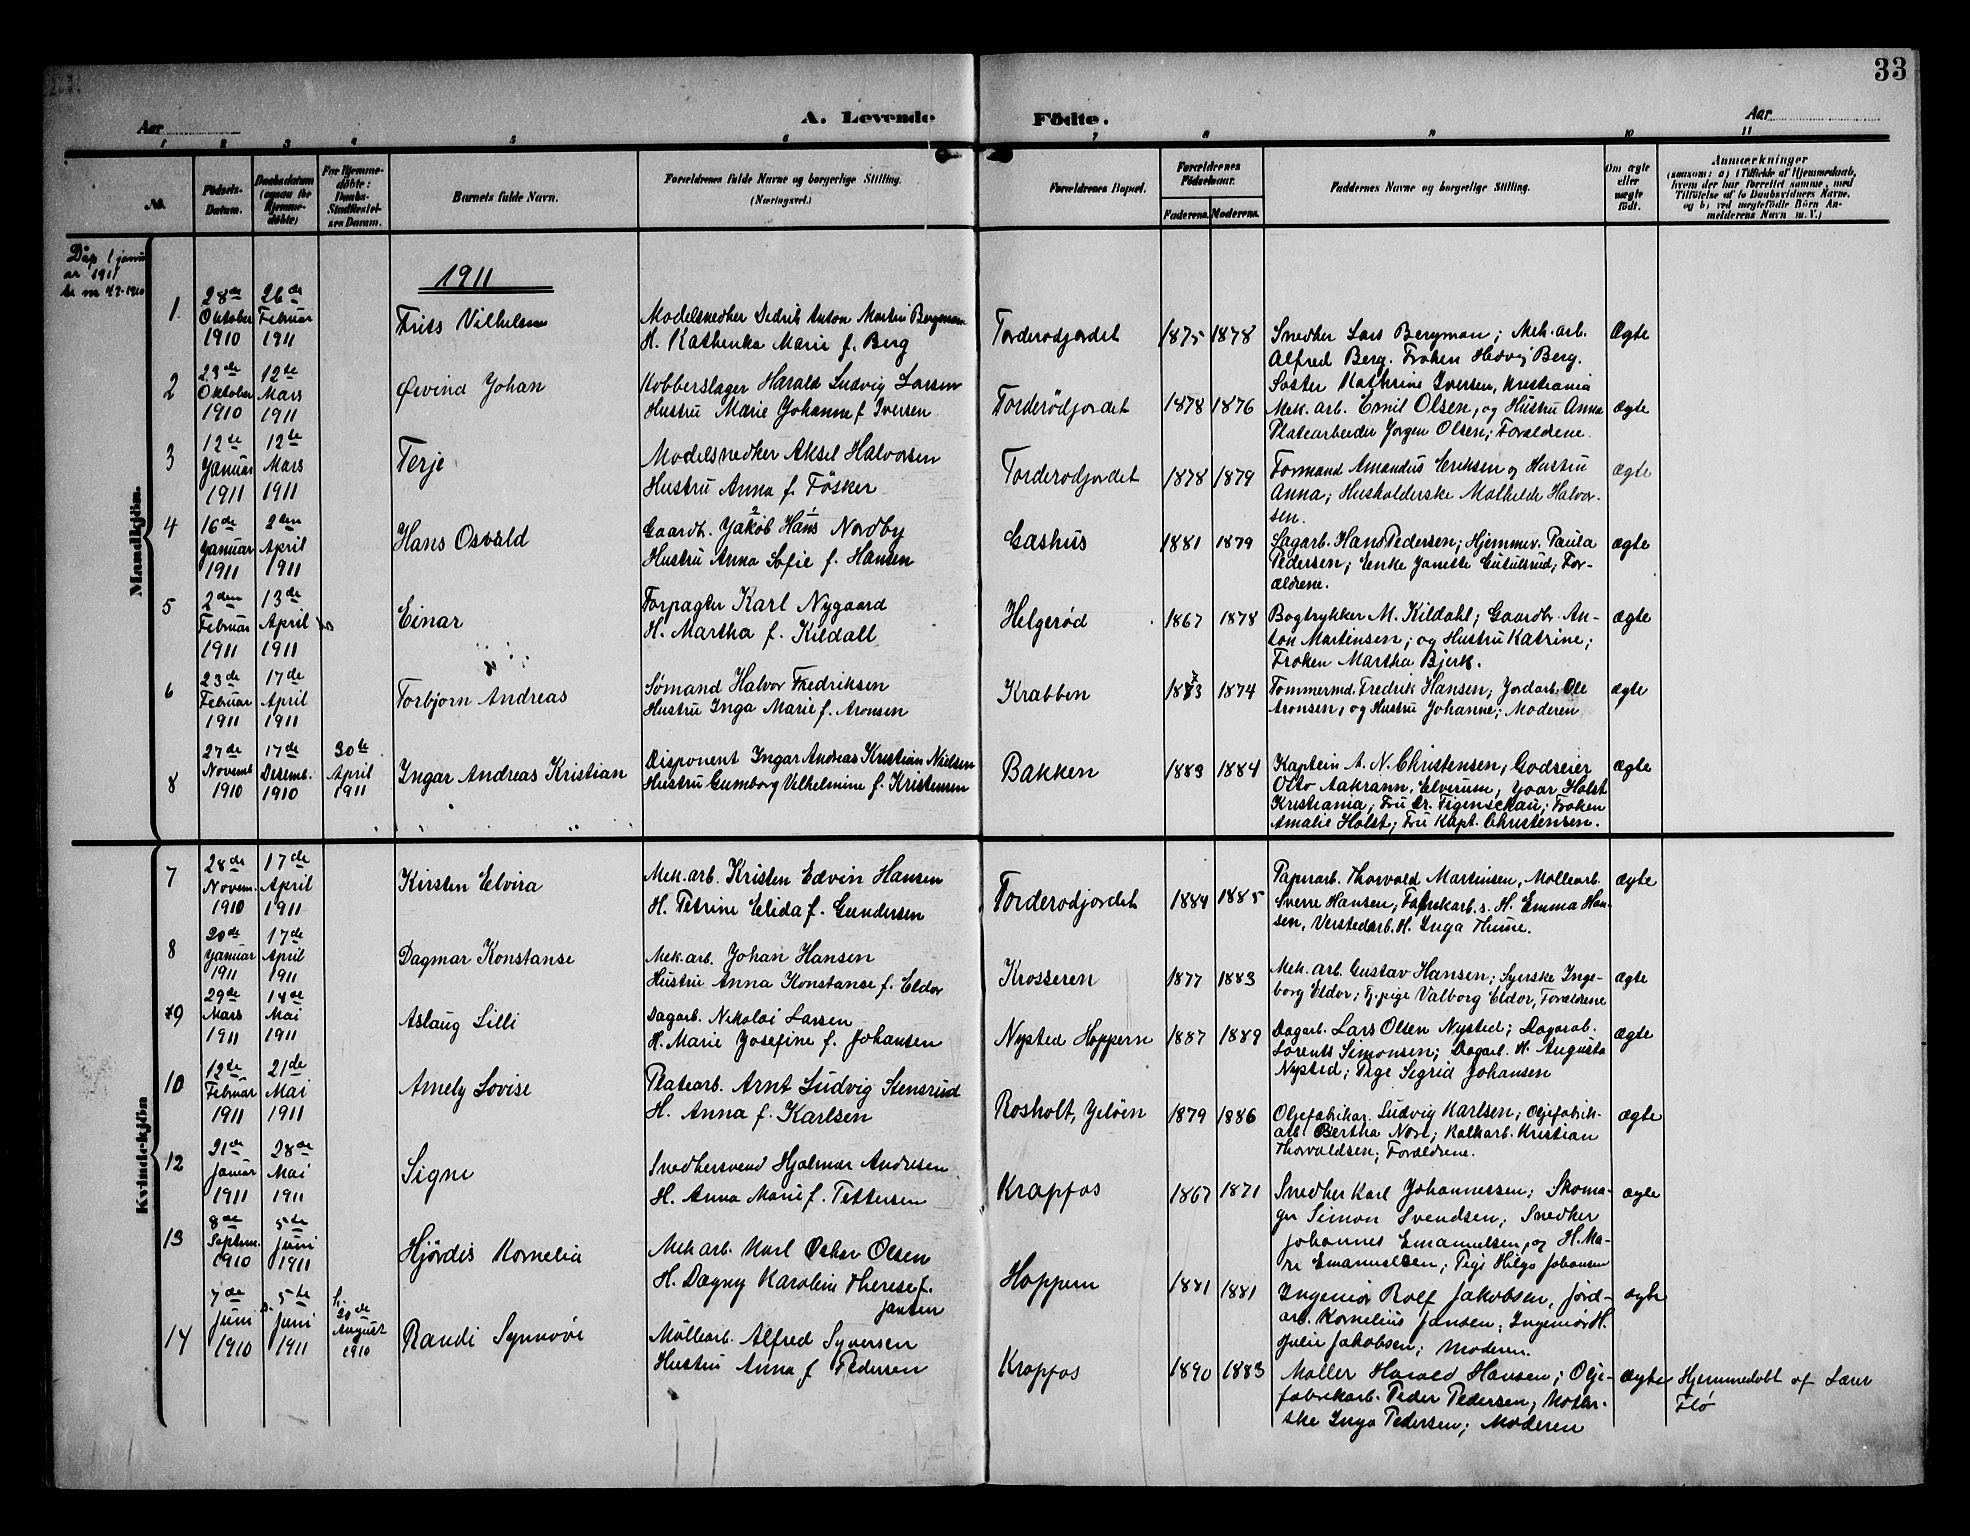 33
Aar
A. Levende Födte.
Aar
1 2 3 4 5 6 7 8 9 10 11
No.
Födsels-Datum.
Daabsdatum (ogsaa for Hjemmedöbte)
For Hjemmedöbte: Daabs-Stadfæstelsens Datum.
Barnets fulde Navn.
Forældrenes fulde Navne og borgerlige Stilling.
(Næringsvei.)
Forældrenes Bopæl.
Forældrenes Födselsaar.
Faderens. Moderens.
Faddernes Navne og borgerlige Stilling.
Om ægte eller uægte födt.
Anmærkninger
(saasom: a) i Tilfælde af Hjemmedaab,
hvem der har forrettet samme, med
Tilföielse af to Daabsvidners Navne,
og b) ved uægtefödte Börn An-
melderens Navn m. V.)
Dåp 1 janu
ar 1911
1911
Mandkjön.
1. 28de Oktober 1910 26de Februar 1911
Frits Vilhelm
Modelsnedker Didrik Anton Martin Bergman
H. Kathenka Marie f. Berg
Torderodjordet 1875 1878
Snedker Lars Bergman; Mek. arb.
Alfred Berg. Frøken Hedvig Berg.
Ægte
2 23de Oktober 1910 12te Mars 1911
Øivind Johan
Kobberslager Harald Ludvig Larsen
Hustru Marie Johanne f Iversen
Torderödjordet 1878 1876
Søster Kathrine Iversen, Kristiania
Mek. arb. Emil Olsen, og Hustru Anna
Platearbeider Jørgen Olsen; Forældrene.
ægte
3 12te Januar 1911 12te Mars 1911
Terje
Modelsnedker Aksel Halvorsen
Hustru Anna f. Fösker
Torderodjordet 1878 1879
Formand Amandus Eriksen og Hustru
Anna; Husholderske Mathilde Halvor-
sen.
ægte
4 16de Januar 1911 2den April 1911
Hans Osvald
Gaardb. Jakob Hans Nordby
2 1
Hustru Anna Sofie f. Hansen
Gashus 1881 1879
Sagarb. Hans Pedersen; Hjemmev. Paula
Pedersen; Enke Janette Gutulsrud; For-
ældrene.
ægte
5 2den Februar 1911 13de April 1911
Einar
Forpagter Karl Nygaard
H. Martha f. Kildall
Helgerød 1867 1878
Bogtrykker M. Kildahl; Gaardbr. An-
ton Martinsen; og Hustru Katrine;
Frøken Martha Bjerk.
ægte
6 23de Februar 1911 17de April 1911
Torbjørn Andreas
Sømand Halvor Fredriksen
Hustru Inga Marie f. Aronsen
Krabben 1873 1874
Tømmermd. Fredrik Hansen; Jordarb. Ole
Aronsen, og Hustru Johanne; Moderen
ægte
8 27de Novemb 1910 17de Desemb. 1910 30te April 1911
Ingar Andreas Kristian
Disponent Ingar Andreas Kristian Nielsen
Hustru Gunborg Vilhelmine f. Kristensen
Bakken 1883 1884
Kaptein A. N. Christensen; Godseier
Otto Aakrann, Elverum; Joar Holst
Kristiania; Fru Dr. Figenschau; Frøken
Amalie Holst; Fru Kapt. Christensen.
ægte
Kvindekjön
7 28de Novem. 1910 17de April 1911
Kirsten Elvira
Mek. arb. Kristen Edvin Hansen
H. Petrine Elida f. Gundersen
Torderodjordet 1884 1885
Papirarb. Thorvald Martinsen, Møllearb.
Sverre Hansen; Fabrikarb.s. H. Emma Han-
sen, Verstedarb. H. Inga Thune.
ægte
8 20de Januar 1911 17de April 1911
Dagmar Konstanse
Mek. arb. Johan Hansen
Hustru Anna Konstanse f. Eldor
Krosseren 1877 1883
Mek. arb. Gustav Hansen; Syerske Inge-
borg Eldor; Tj.pige Valborg Eldor, Forældrene
ægte
9 29de Mars 1911 14de Mai 1911
Aslaug Lilli
Dagarb. Nikolai Larsen
H. Marie Josefine f. Johansen
Nysted Hoppern 1887 1889
Dagarb. Lars Olsen Nysted; Dagarb.
Lorents Simonsen; Dagarb. H. Augusta
Nysted; Pige Sigrid Johansen
ægte
10 12te Februar 1911 21de Mai 1911
Amely Lovise
Platearb. Arnt Ludvig Stensrud
H. Anna f. Karlsen
Rosholt, Jeløen 1879 1886
Oljefabrikar. Ludvig Karlsen; Oljefabrik-
arb. Bertha Nore; Kalkarb. Kristian
Thorvaldsen; Forældrene.
ægte
12 21de Januar 1911 28de Mai 1911
Signe
Snedkersvend Hjalmar Andresen
H. Anna Marie f. Pettersen
Krapfos 1867 1871
Snedker Karl Johannessen; Skoma-
ger Simon Svendsen; Snedker
Johannes Emanuelsen, og H. Ma-
ri Emanuelsen; Pige Hilga Johansen
ægte
13 8de Septem. 1910 5te Juni 1911
Hjördis Kornelia
Mek arb. Karl Oskar Olsen
H. Dagny Karoline Therese f.
Jansen
Hoppern 1881 1881
Ingeniør Rolf Jakobsen, Jord-
arb. Kornelius Jansen; Ingeniør H.
Julie Jakobsen; Moderen.
ægte
14 7de Juni 1910 5te Juni 1911 20de August 1910
Randi Synnøve
Möllearb. Alfred Syversen
Hustru Anna f Pedersen
Krapfos 1890 1883
Møller Harald Hansen; Olje-
fabrikarb. Peder Pedersen;
Inga Pedersen; Moderen
ægte
Hjemmedøbt af Lærer
Flø